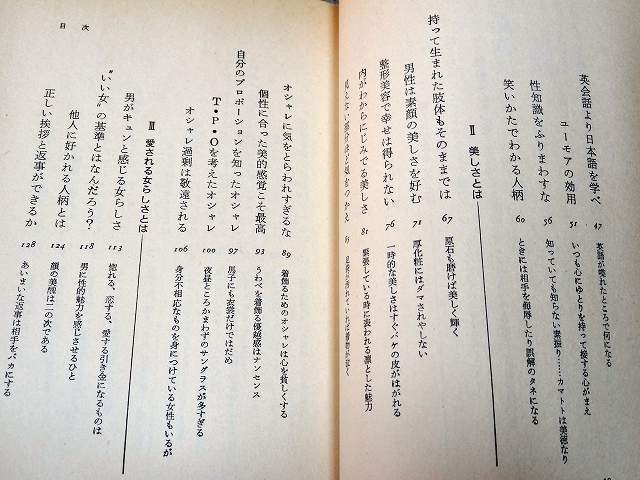 英会話より日本語を学べ 47 英語が喋れたところで何になる
ユーモアの効用 51 いつも心にゆとりを持って接する心がまえ
性知識をふりまわすな 56 知っていても知らない素振り……カマトトは美徳なり
笑いかたでわかる人柄 60 ときには相手を侮辱したり誤解のタネになる
Ⅱ 美しさとは
持って生まれた肢体もそのままでは 67 原石も磨けば美しく輝く
男性は素顔の美しさを好む 71 厚化粧にはダマされやしない
整形美容で幸せは得られない 76 一時的な美しさはすぐバケの皮がはがれる
内がわからにじみでる美しさ 81 緊張している時に表われる凛とした魅力
目次
オシャレに気をとらわれすぎるな 89 着飾るためのオシャレは心を貧しくする
個性に合った美的感覚こそ最高 93 うわべを着飾る優越感はナンセンス
自分のプロポーションを知ったオシャレ 97 男子にも衣裳だけではだめ
T・P・Oを考えたオシャレ 100 夜昼ところかまわずのサングラスが多すぎる
オシャレ過剰は敬遠される 106 身分不相応なものを身につけている女性もいるが
Ⅲ 愛される女らしさとは
男がキュンと感じる女らしさ 113 惚れる、恋する、愛する引き金になるものは
“いい女”の基準とはなんだろう？ 118 男に性的魅力を感じさせるひと
他人に好かれる人柄とは 124 顔の美醜は二の次である
正しい挨拶と返事ができるか 128 あいまいな返事は相手をバカにする